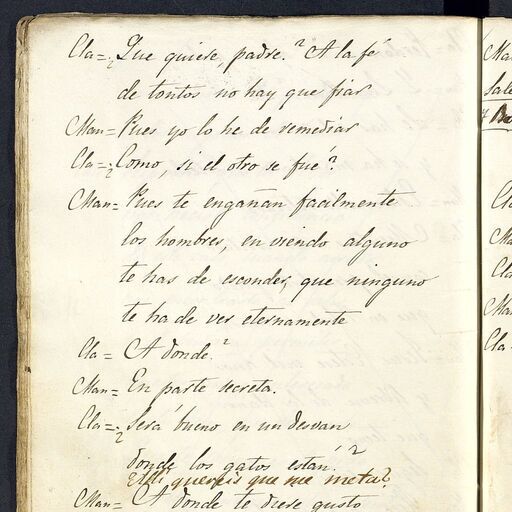 Cla=¿Que quiere, padre.? A la fé
de tontos no hay que fiar
Man=Pues yo lo he de remediar
Cla=¿Como, si el otro se fué?
Man=Pues te engañan facilmente
los hombres, en viendo alguno
te has de esconder, que ninguno
te ha de ver eternamente
Cla= A donde.?
Man= En parte secreta.
Cla=¿Será bueno en un desvan
donde los gatos están.?
quereis que me meta?
Man= A donde te diere gusto